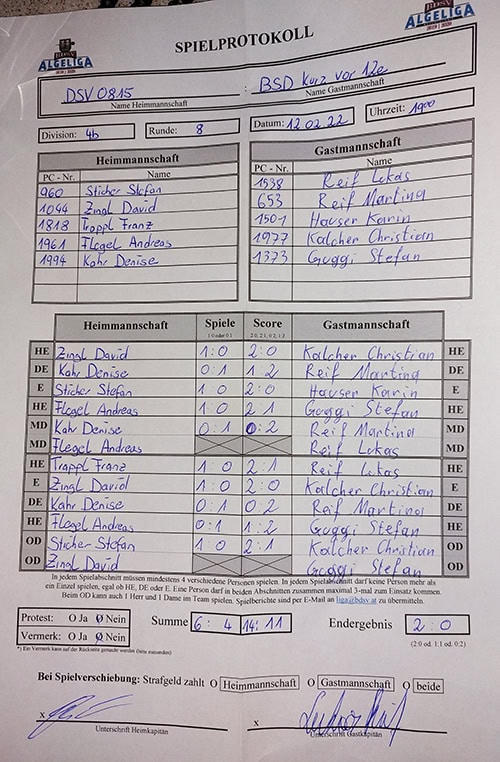 BDSV
ALGELIGA
2019 | 2020
SPIELPROTOKOLL
BDSV
ALGELIGA
2019 | 2020
DSV 0815 : BSD kurz vor 12e
Name Heimmannschaft Name Gastmannschaft
Division: 4b Runde: 8 Datum: 12.02.22 Uhrzeit: 1900
Heimmannschaft Gastmannschaft
PC - Nr. Name PC - Nr. Name
960 Sticher Stefan 1538 Reif Lukas
1044 Zingl David 653 Reif Martina
1818 Trappl Franz 1501 Hauser Karin
1961 Flegel Andreas 1977 Kalcher Christian
1994 Kahr Denise 1373 Guggi Stefan
Heimmannschaft Spiele Score Gastmannschaft
1:0 oder 0:1 2:0, 2:1, 0:2, 1:2
HE Zingl David 1:0 2:0 Kalcher Christian HE
DE Kahr Denise 0:1 1 2 Reif Martina DE
E Sticher Stefan 1 0 2:0 Hauser Karin E
HE Flegel Andreas 1 0 2 1 Guggi Stefan HE
MD Kahr Denise 0:1 0:2 Reif Martina MD
MD Flegel Andreas Reif Lukas MD
HE Trappl Franz 1:0 2:1 Reif Lukas HE
E Zingl David 1:0 2:0 Kalcher Christian E
DE Kahr Denise 0:1 0 2 Reif Martina DE
HE Flegel Andreas 0:1 1:2 Guggi Stefan HE
OD Sticher Stefan 1 0 2:1 Kalcher Christian OD
OD Zingl David Guggi Stefan OD
In jedem Spielabschnitt müssen mindestens 4 verschiedene Personen spielen. In jedem Spielabschnitt darf keine Person mehr als
ein Einzel spielen, egal ob HE, DE oder E. Eine Person darf in beiden Abschnitten zusammen maximal 3-mal zum Einsatz kommen.
Beim OD kann auch 1 Herr und 1 Dame im Team spielen. Spielberichte sind per E-Mail an liga@bdsv.at zu übermitteln.
Protest: O Ja O Nein Summe 6 : 4 14:11 Endergebnis 2 : 0
Vermerk: O Ja O Nein (2:0 od. 1:1 od. 0:2)
*) Ein Vermerk kann auf der Rückseite gemacht werden (bitte ankreuzen)
Bei Spielverschiebung: Strafgeld zahlt O Heimmannschaft O Gastmannschaft O beide
x x
Unterschrift Heimkapitän Unterschrift Gastkapitän